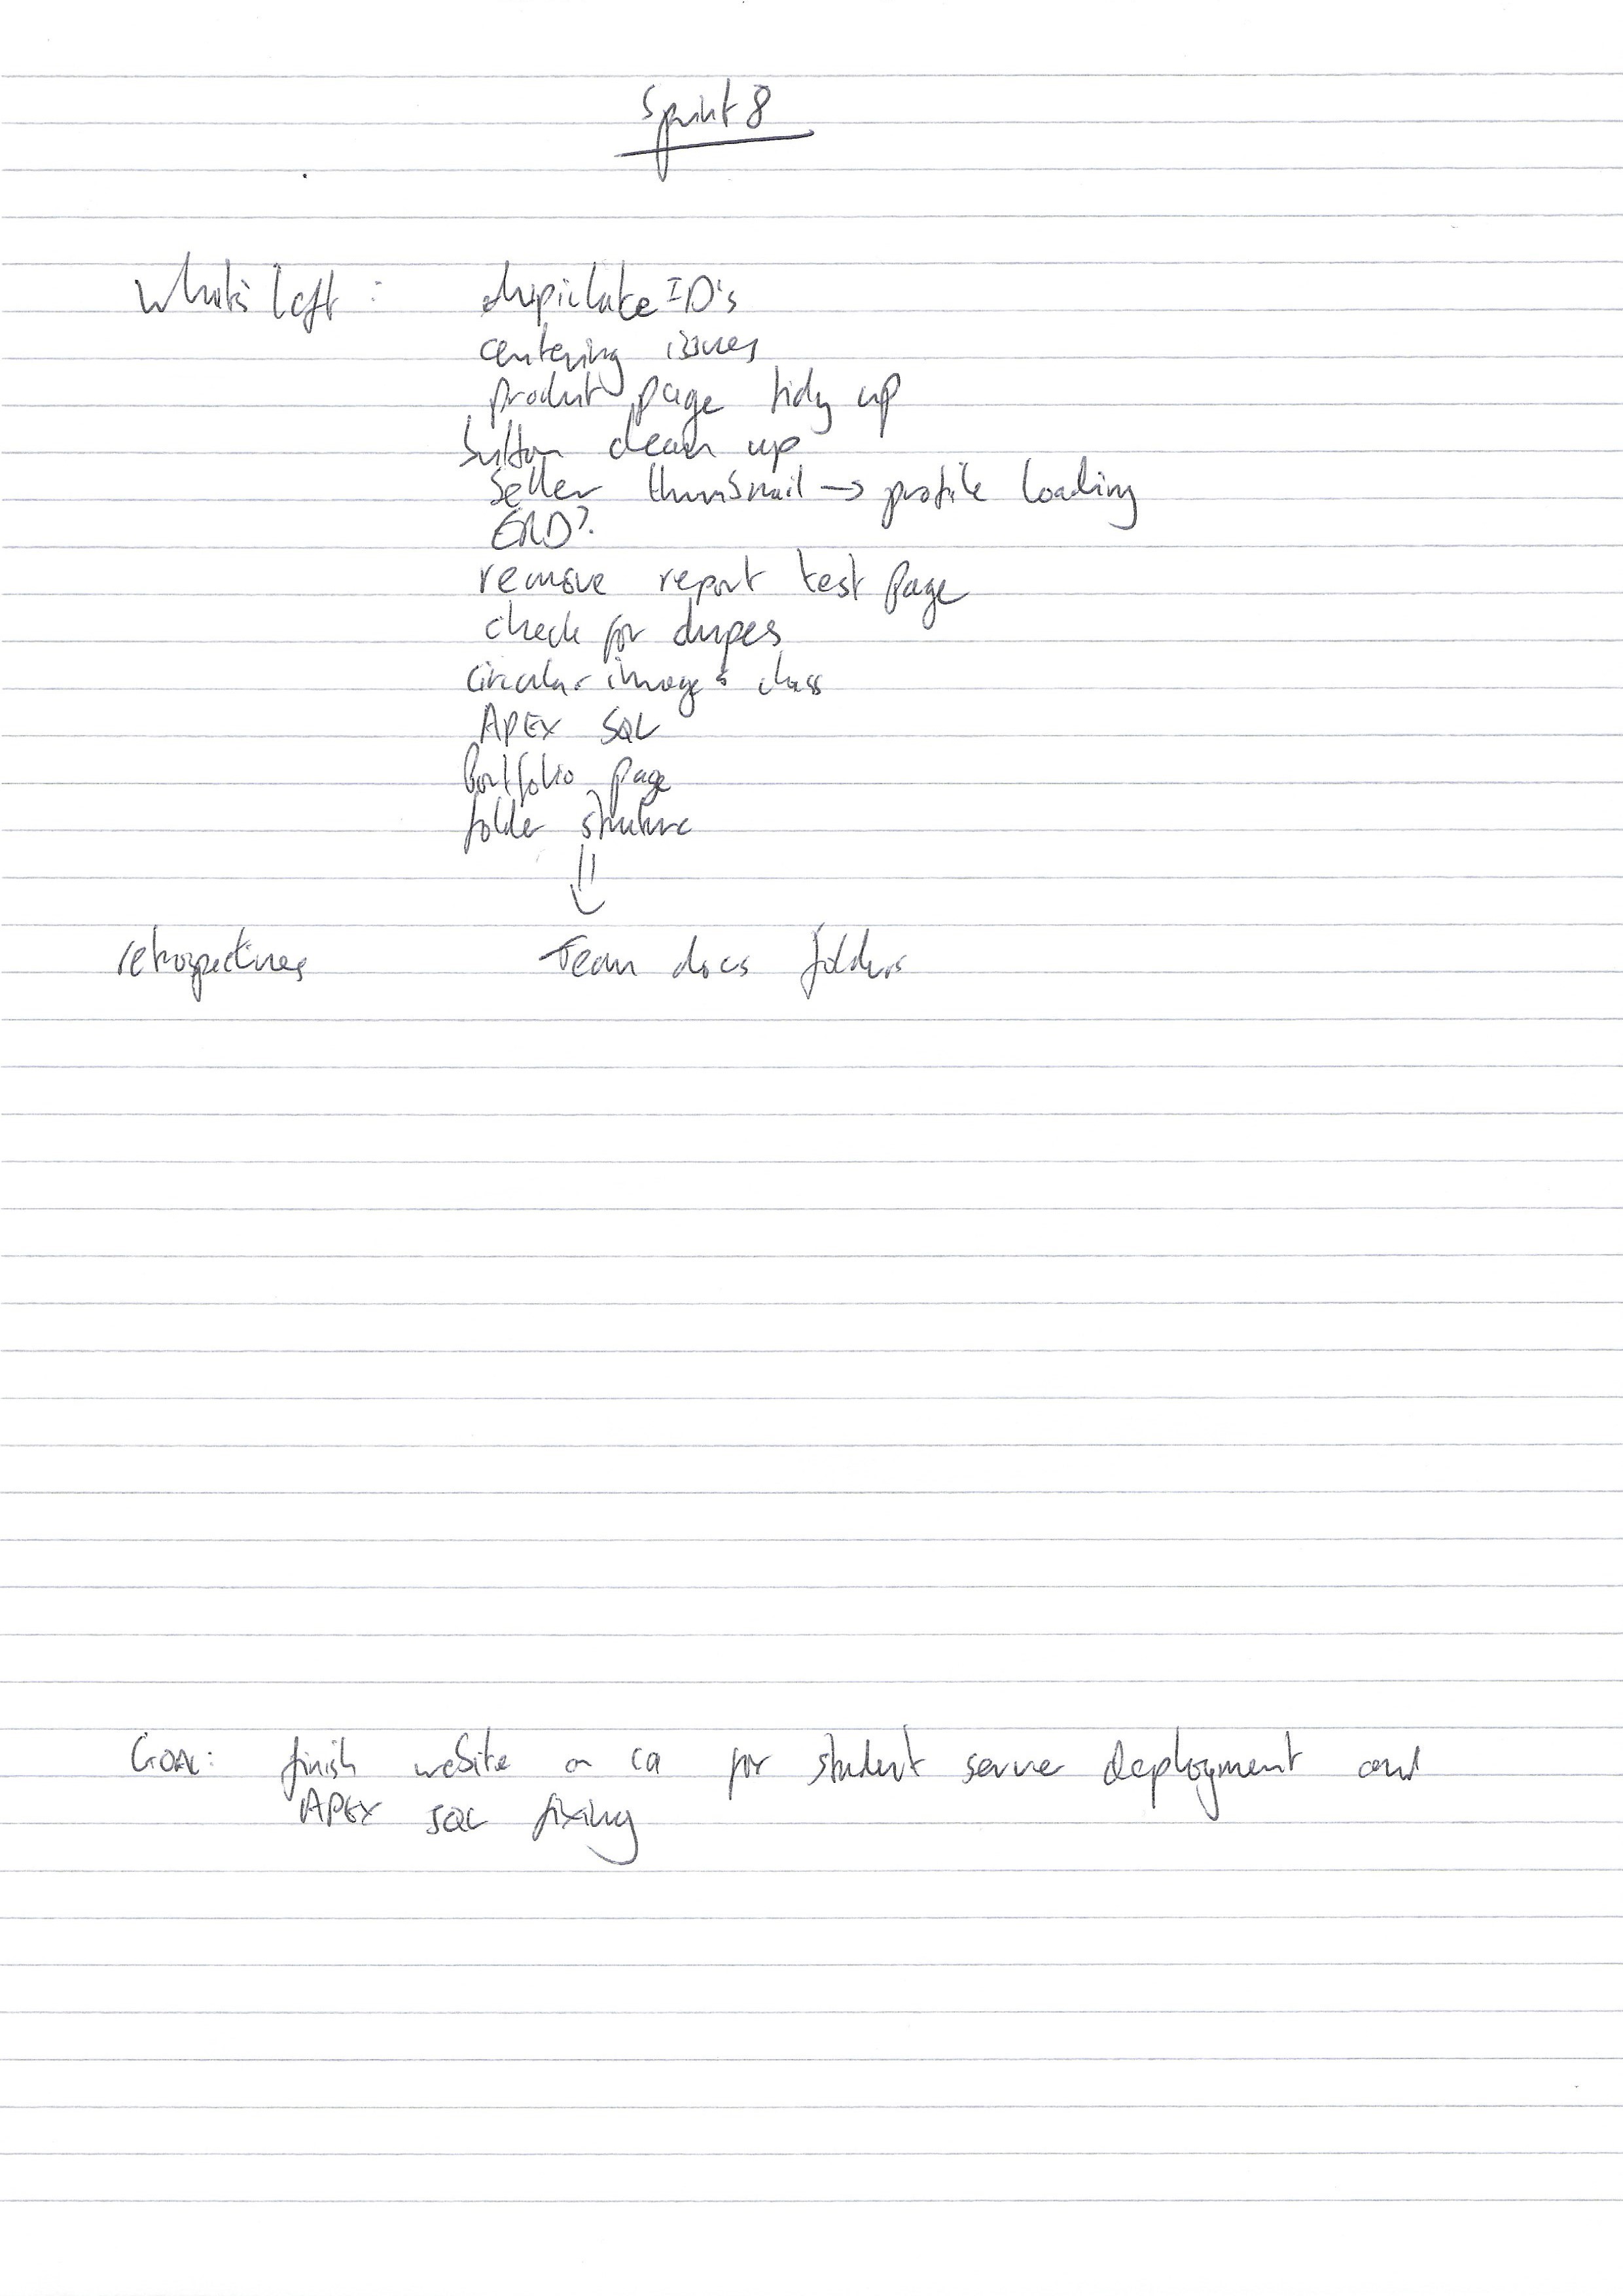 Sprint 8
What's left :
dupiclate ID's
centering issues
product page tidy up
button clean up
Seller thumbnail → profile loading
ERD?
remove report test page
check for dupes
circular images class
APEX SQL
Portfolio page
folder structure
↓
retrospectives Team docs folders
GOAL: finish website on ca for student server deployment and
APEX SQL fixing